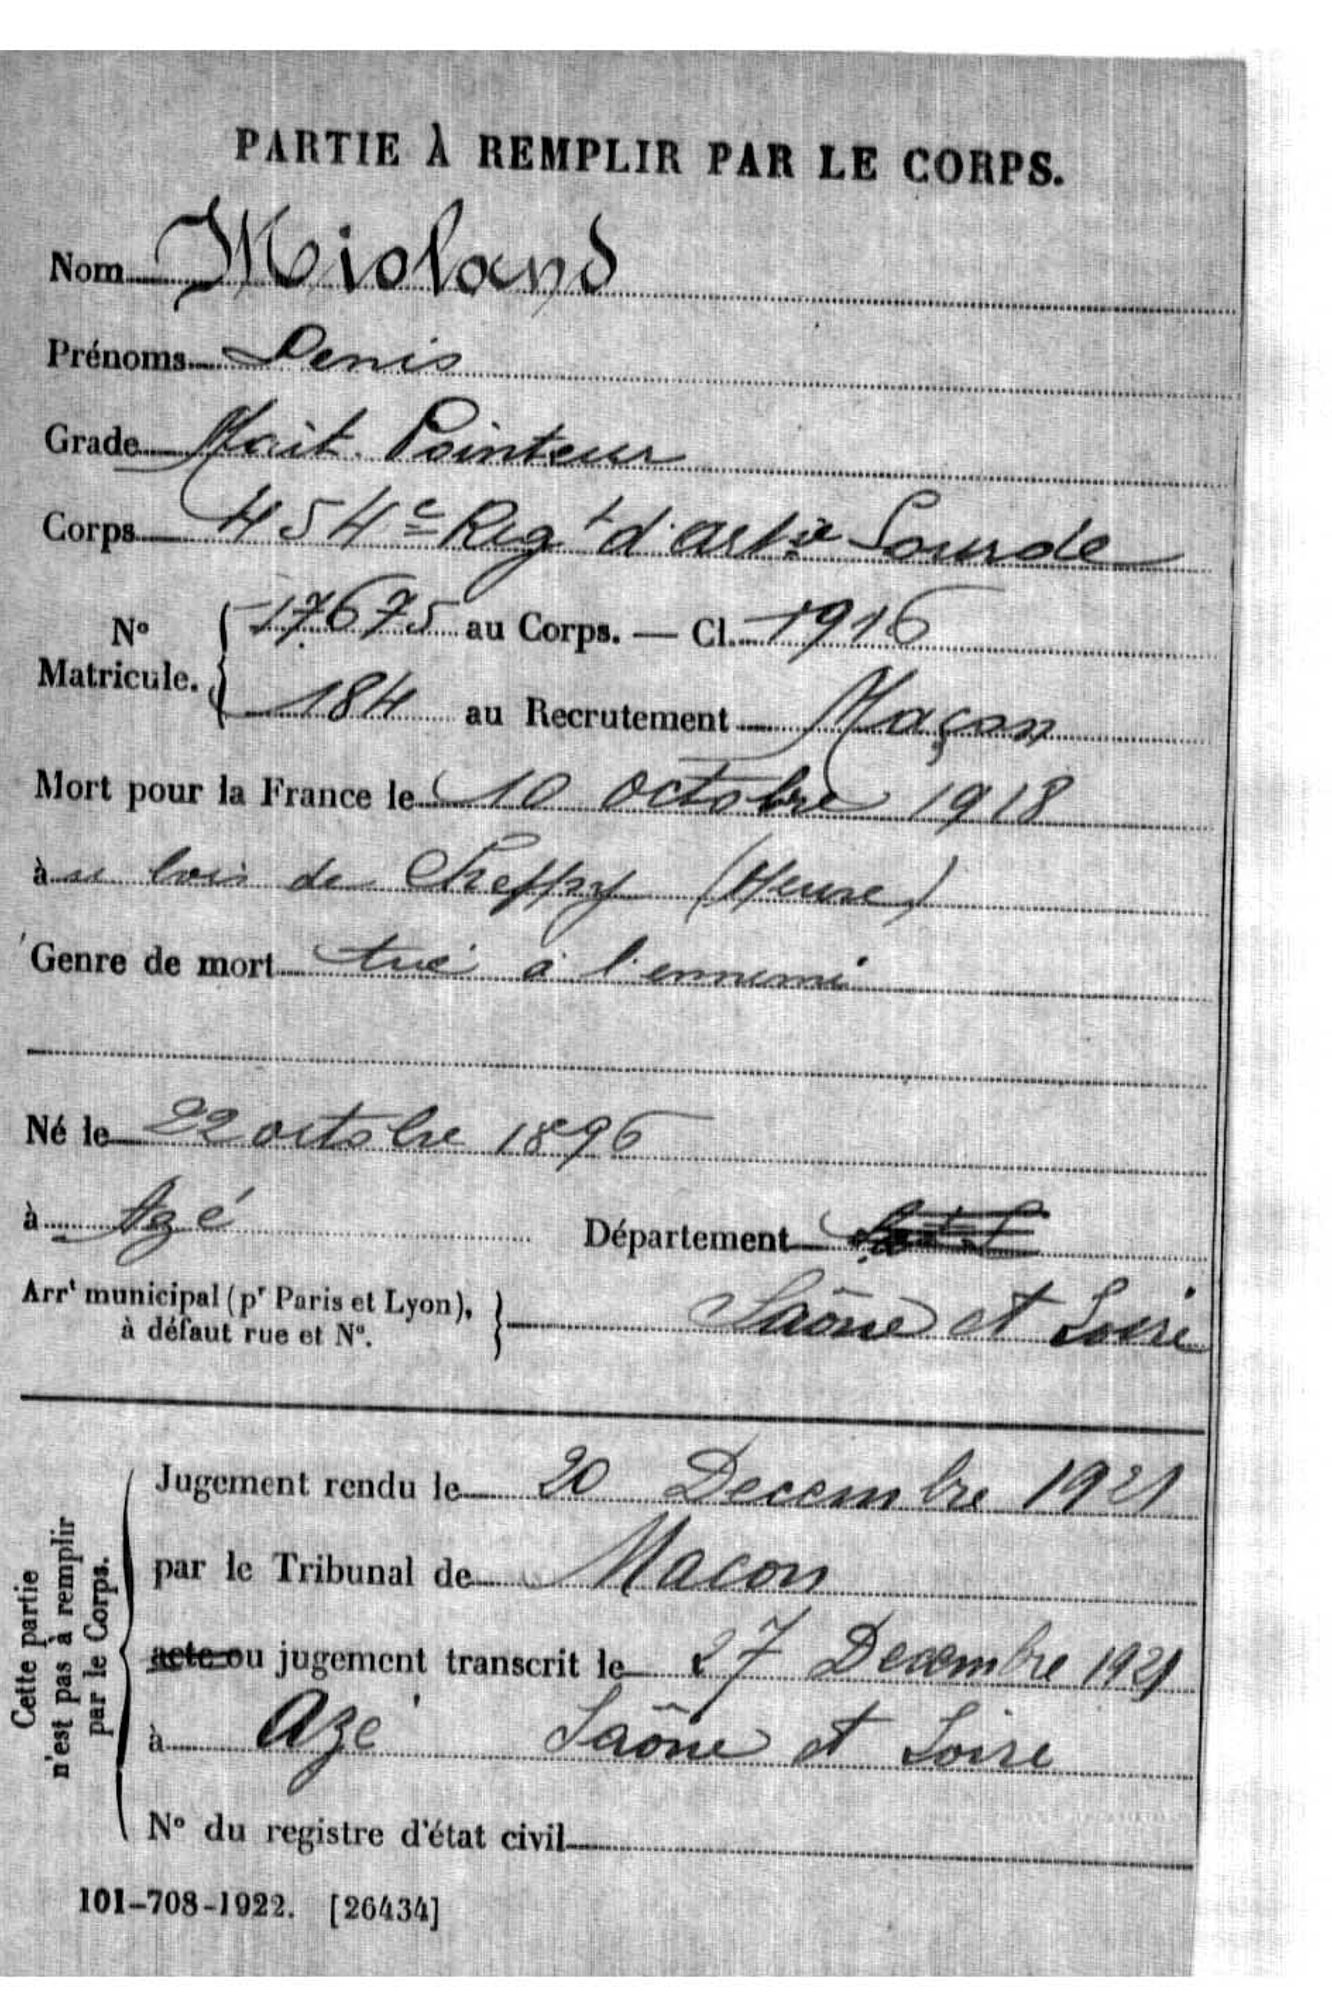 PARTIE À REMPLIR PAR LE CORPS.
Nom Mioland
Prénoms Denis
Grade Mait. Pointeur
Corps 454e Regt d'artie Lourde
No Matricule. { 17675 au Corps. — Cl. 1916
184 au Recrutement Maçon
Mort pour la France le 10 octobre 1918
à u bois de Cheppy (Meuse)
Genre de mort tué à l'ennemi
Né le 22 octobre 1896
à Azé Département
Arrt municipal (pr Paris et Lyon), à défaut rue et No. } Saône et Loire
Cette partie n'est pas à remplir par le Corps.
Jugement rendu le 20 Decembre 1921
par le Tribunal de Macon
acte ou jugement transcrit le 27 Decembre 1921
à Azé Saône et Loire
No du registre d'état civil
101-708-1922. [26434]